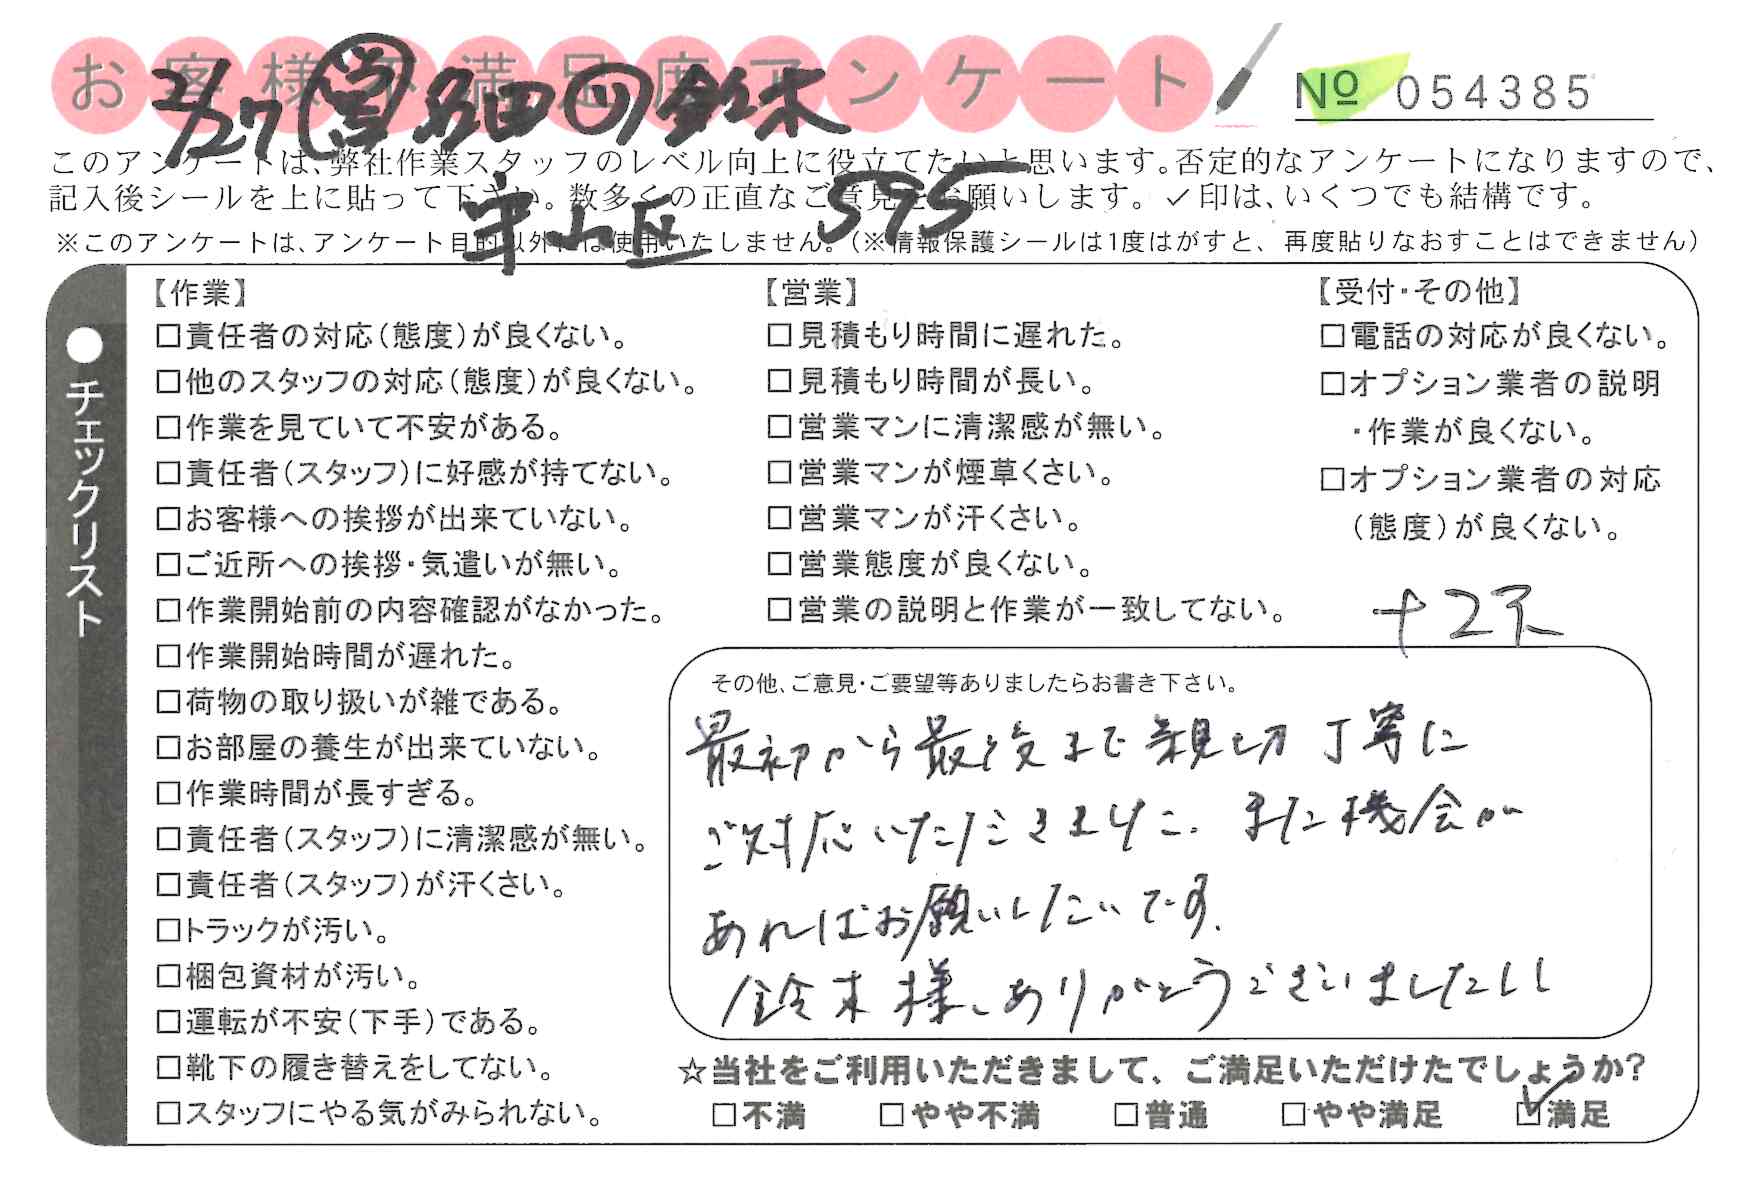 お客様不満足度アンケート
No 054385
2/27 営 名田 リ 鈴木
このアンケートは、弊社作業スタッフのレベル向上に役立てたいと思います。否定的なアンケートになりますので、
記入後シールを上に貼って下さい。数多くの正直なご意見をお願いします。✓印は、いくつでも結構です。
守山区 S95
※このアンケートは、アンケート目的以外には使用いたしません。(※情報保護シールは1度はがすと、再度貼りなおすことはできません)
●チェックリスト
【作業】
□責任者の対応(態度)が良くない。
□他のスタッフの対応(態度)が良くない。
□作業を見ていて不安がある。
□責任者(スタッフ)に好感が持てない。
□お客様への挨拶が出来ていない。
□ご近所への挨拶・気遣いが無い。
□作業開始前の内容確認がなかった。
□作業開始時間が遅れた。
□荷物の取り扱いが雑である。
□お部屋の養生が出来ていない。
□作業時間が長すぎる。
□責任者(スタッフ)に清潔感が無い。
□責任者(スタッフ)が汗くさい。
□トラックが汚い。
□梱包資材が汚い。
□運転が不安(下手)である。
□靴下の履き替えをしてない。
□スタッフにやる気がみられない。
【営業】
□見積もり時間に遅れた。
□見積もり時間が長い。
□営業マンに清潔感が無い。
□営業マンが煙草くさい。
□営業マンが汗くさい。
□営業態度が良くない。
□営業の説明と作業が一致してない。
【受付・その他】
□電話の対応が良くない。
□オプション業者の説明
・作業が良くない。
□オプション業者の対応
(態度)が良くない。
その他、ご意見・ご要望等ありましたらお書き下さい。
最初から最後まで親切丁寧に
ご対応いただきました。また機会が
あればお願いしたいです。
鈴木様、ありがとうございました!!
☆当社をご利用いただきまして、ご満足いただけたでしょうか?
□不満 □やや不満 □普通 □やや満足 ☑満足